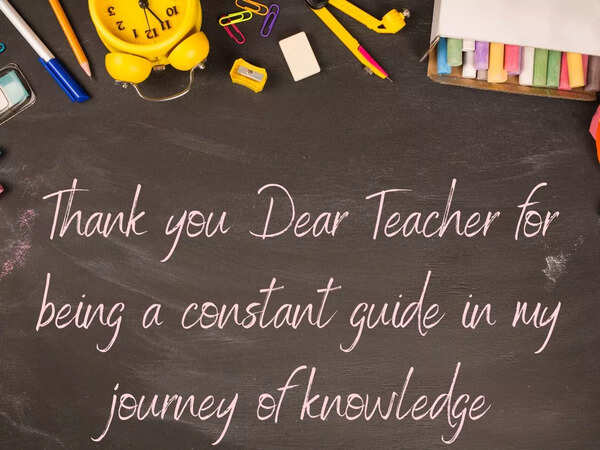 Thank you Dear Teacher for
being a constant guide in my
journey of knowledge